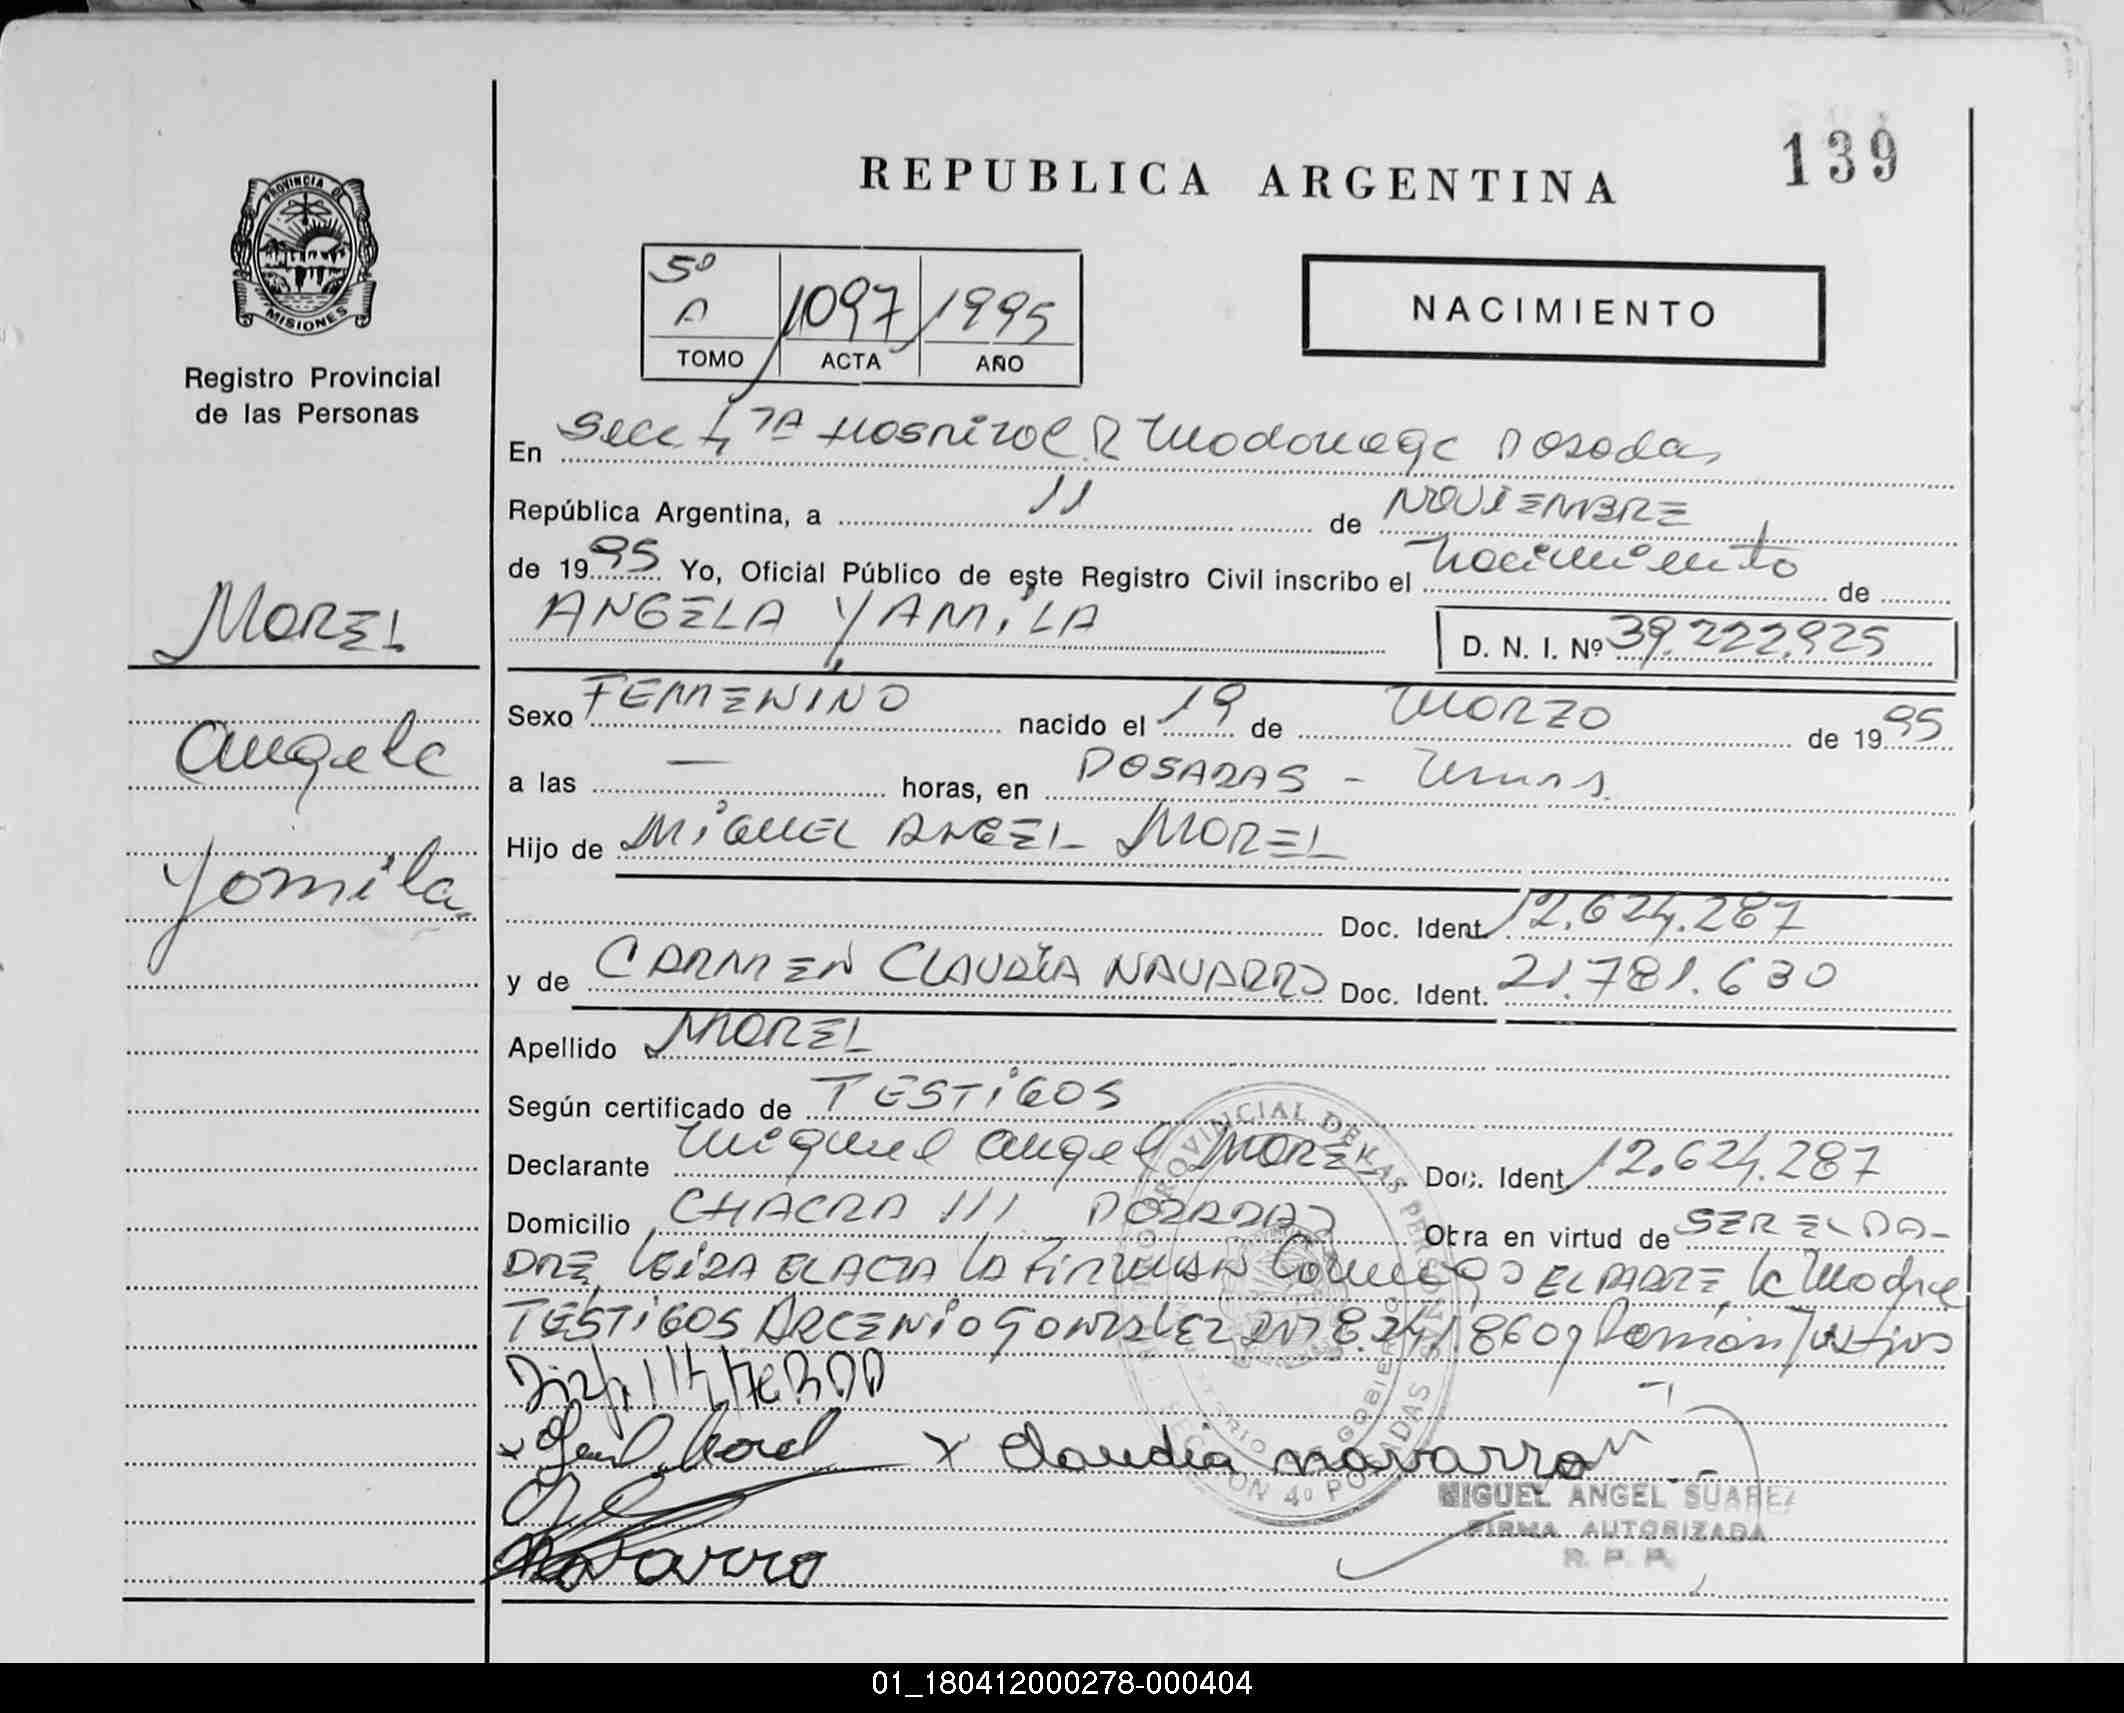 139
REPUBLICA ARGENTINA
PROVINCIA DE
MISIONES
Registro Provincial
de las Personas
5º
A 1097 1995
TOMO ACTA AÑO
NACIMIENTO
En Secc 4TA Hospital R Madariaga Posadas
República Argentina, a 11 de NOVIEMBRE
de 1995 Yo, Oficial Público de este Registro Civil inscribo el nacimiento de
ANGELA YAMILA D. N. I. Nº 39.222.925
MOREL
Angela
Yamila
Sexo FEMENINO nacido el 19 de MARZO de 1995
a las — horas, en POSADAS -
Hijo de MIGUEL ANGEL MOREL
Doc. Ident. 12.624.287
y de CARMEN CLAUDIA NAVARRO Doc. Ident. 21.781.630
Apellido MOREL
Según certificado de TESTIGOS
Declarante Miguel Angel MOREL Doc. Ident. 12.624.287
Domicilio CHACRA 111 POSADAS Obra en virtud de SER EL PA-
DRE, LEIDA EL ACTA LA FIRMAN Conmigo EL PADRE, la Madre
TESTIGOS ARCENIO GONZALEZ 8.241.860 y Ramón
Morel x Claudia navarro
Navarro
MIGUEL ANGEL SUAREZ
FIRMA AUTORIZADA
R. P. P.
PROVINCIAL DE LAS PERSONAS
GOBIERNO
SECCION 4º POSADAS
01_180412000278-000404